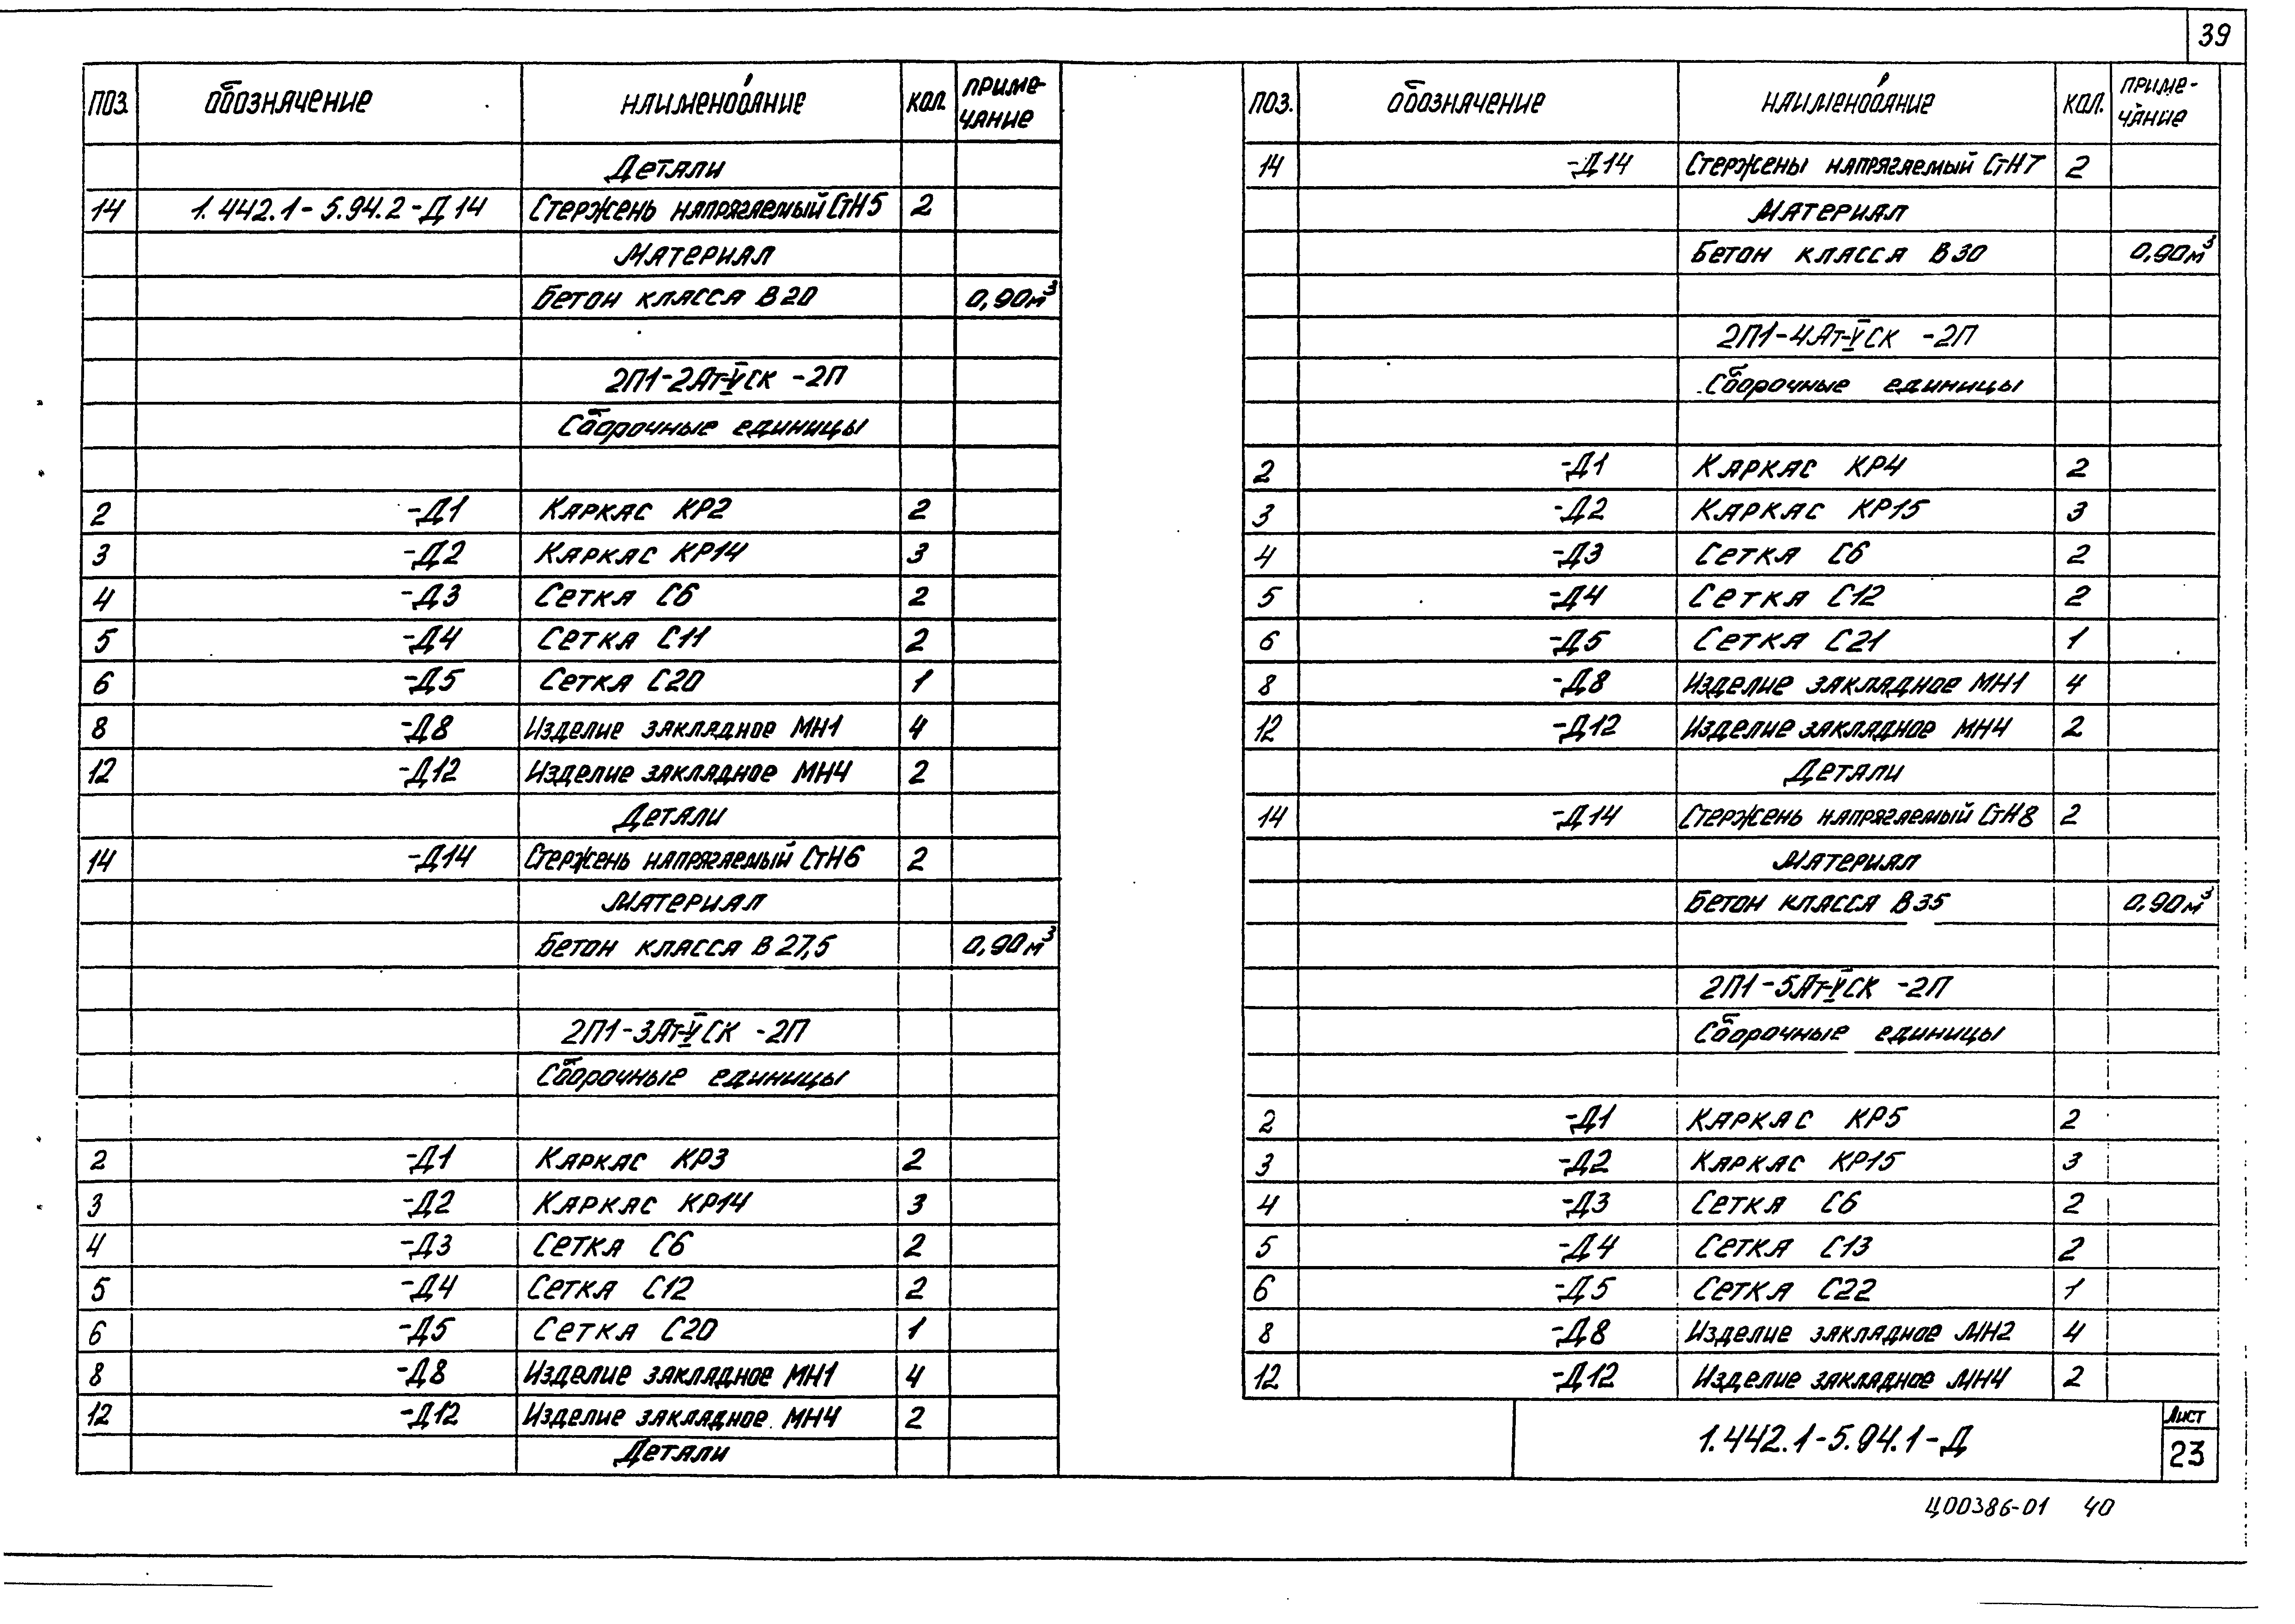 39
ПОЗ. Обозначение Наименование Кол. Приме-
чание
Детали
14 1.442.1-5.94.2-Д14 Стержень напрягаемый СтН5 2
Материал
Бетон класса В20 0,90м³
2П1-2Ат-VСК -2П
Сборочные единицы
2 -Д1 Каркас КР2 2
3 -Д2 Каркас КР14 3
4 -Д3 Сетка С6 2
5 -Д4 Сетка С11 2
6 -Д5 Сетка С20 1
8 -Д8 Изделие закладное МН1 4
12 -Д12 Изделие закладное МН4 2
Детали
14 -Д14 Стержень напрягаемый СтН6 2
Материал
Бетон класса В27,5 0,90м³
2П1-3Ат-VСК -2П
Сборочные единицы
2 -Д1 Каркас КР3 2
3 -Д2 Каркас КР14 3
4 -Д3 Сетка С6 2
5 -Д4 Сетка С12 2
6 -Д5 Сетка С20 1
8 -Д8 Изделие закладное МН1 4
12 -Д12 Изделие закладное МН4 2
Детали
ПОЗ. Обозначение Наименование Кол. Приме-
чание
14 -Д14 Стержены напрягаемый СтН7 2
Материал
Бетон класса В30 0,90м³
2П1-4Ат-VСК -2П
Сборочные единицы
2 -Д1 Каркас КР4 2
3 -Д2 Каркас КР15 3
4 -Д3 Сетка С6 2
5 -Д4 Сетка С12 2
6 -Д5 Сетка С21 1
8 -Д8 Изделие закладное МН1 4
12 -Д12 Изделие закладное МН4 2
Детали
14 -Д14 Стержень напрягаемый СтН8 2
Материал
Бетон класса В35 0,90м³
2П1-5Ат-VСК -2П
Сборочные единицы
2 -Д1 Каркас КР5 2
3 -Д2 Каркас КР15 3
4 -Д3 Сетка С6 2
5 -Д4 Сетка С13 2
6 -Д5 Сетка С22 1
8 -Д8 Изделие закладное МН2 4
12 -Д12 Изделие закладное МН4 2
1.442.1-5.94.1-Д
Лист
23
Ц00386-01 40